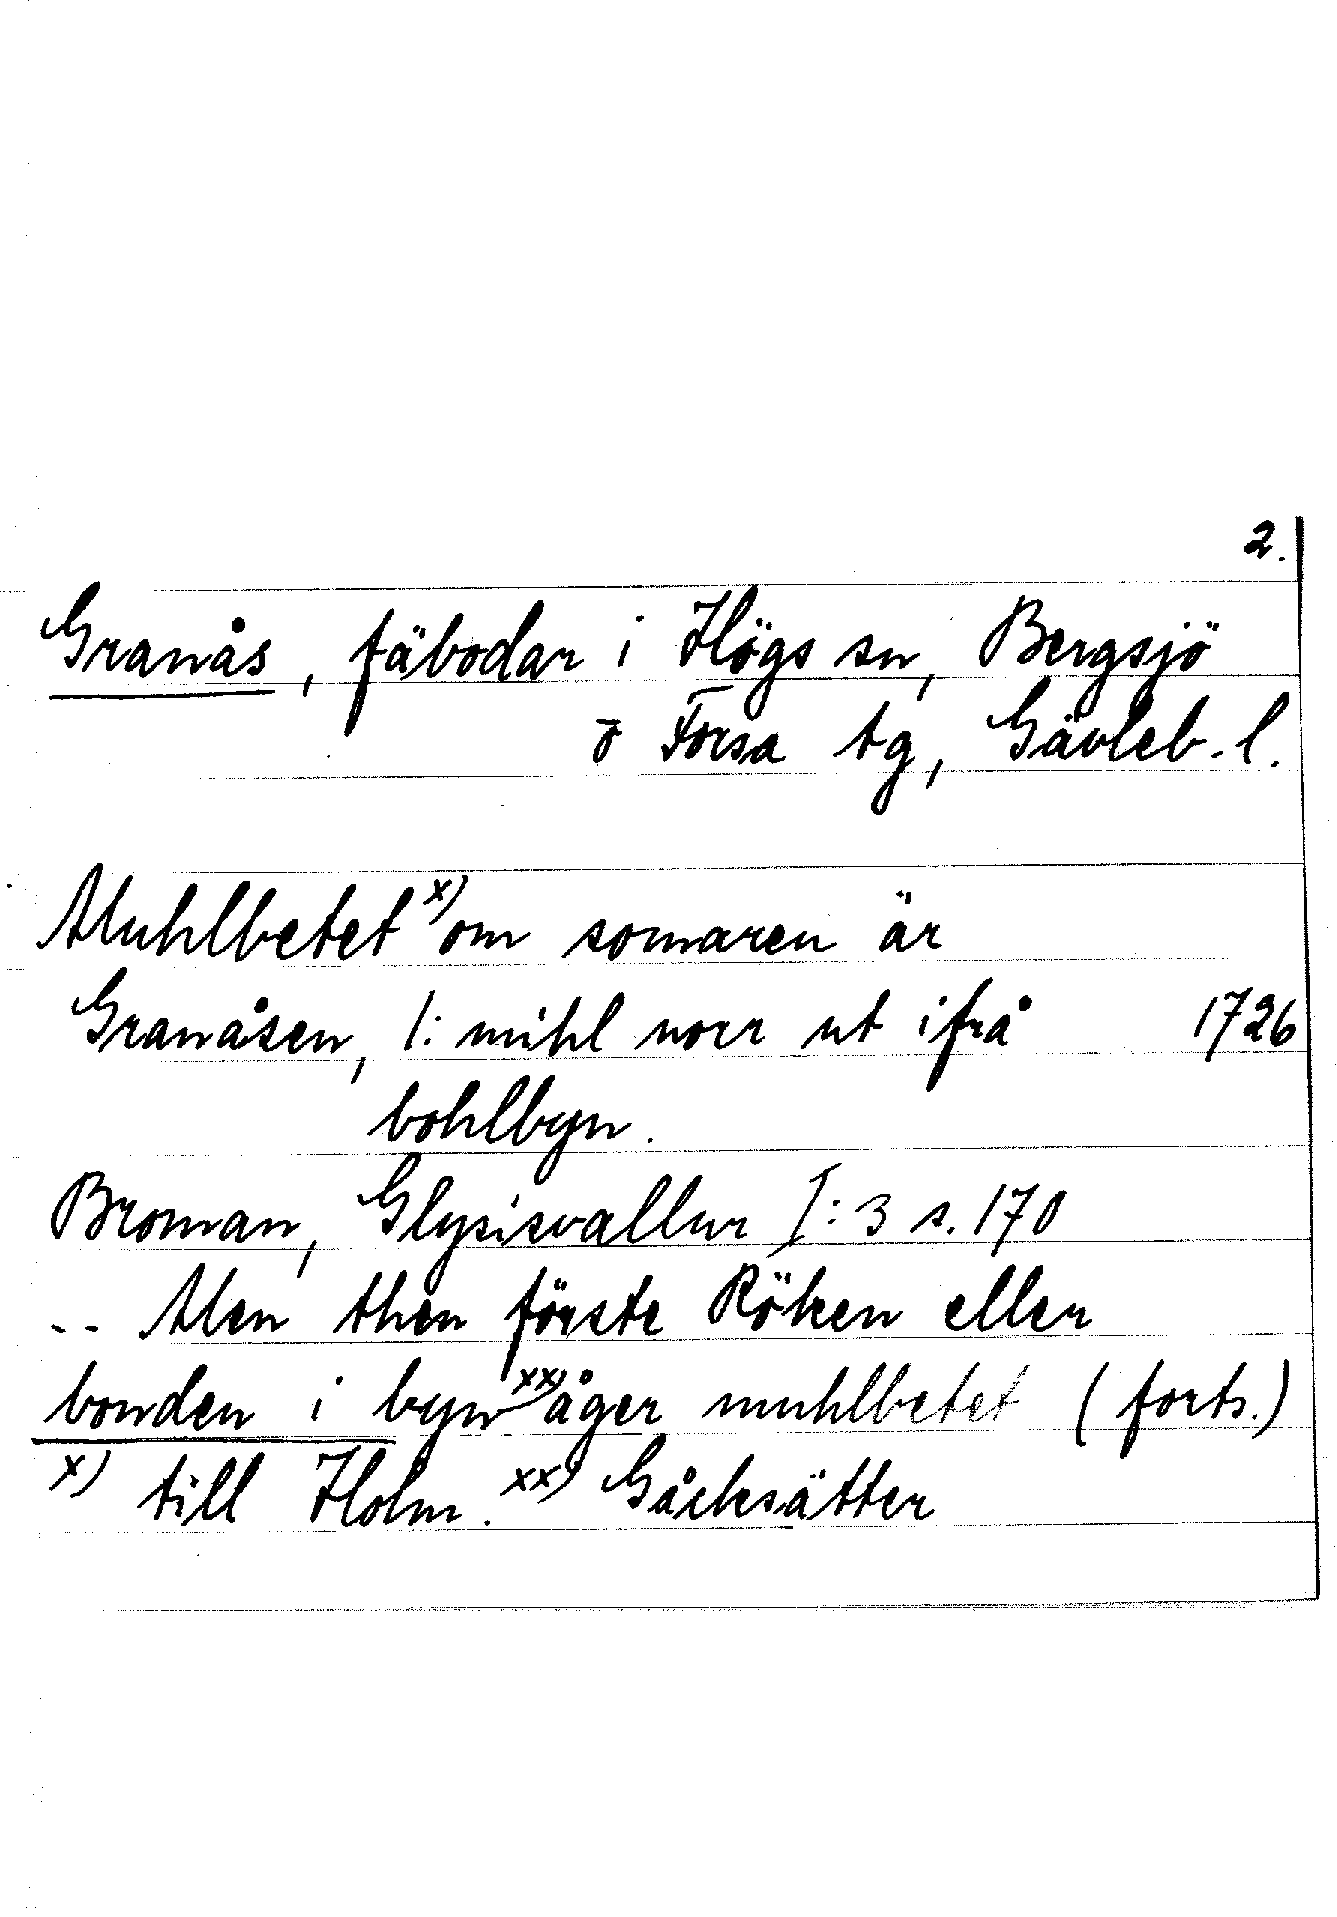 2.
Granås, fäbodar i Högs sn, Bergsjö
o Forsa tg, Gävleb. l.
Muhlbetet x) om somaren är
Granåsen, 1: mihl norr ut ifrå 1726
bohlbyn.
Broman, Glysisvallur I:3 s. 170
-- Men then förste Röken eller
bonden i byn xx) åger muhlbetet (forts.)
x) till Holm. xx) Gåcksätter